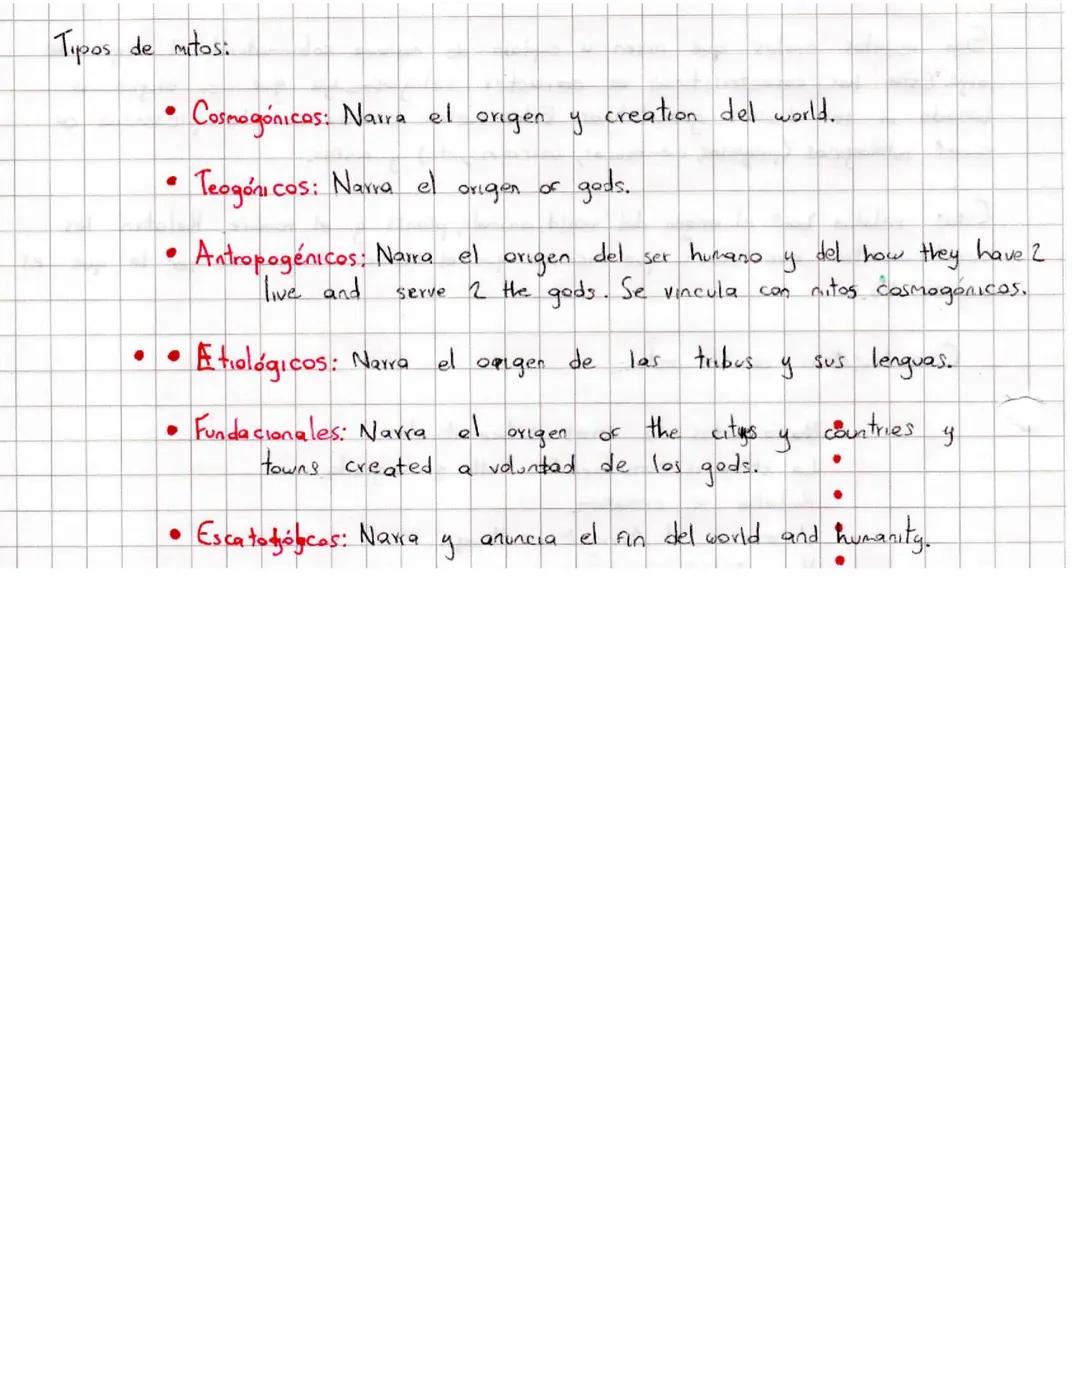 Tipos de mitos:
• Cosmogónicos: Narra el origen y creation del world.
• Teogónicos: Narra el origen of gods.
• Antropogénicos: Narra el origen del ser humano y del how they have 2
live and serve 2 the gods. Se vincula con mitos cosmogónicos.
• • Etiológicos: Narra el origen de las tribus y sus lenguas.
• Fundacionales: Narra el origen of the citys y countries y
towns created a voluntad de los gods.
• Escatológicos: Narra y anuncia el fin del world and humanity.